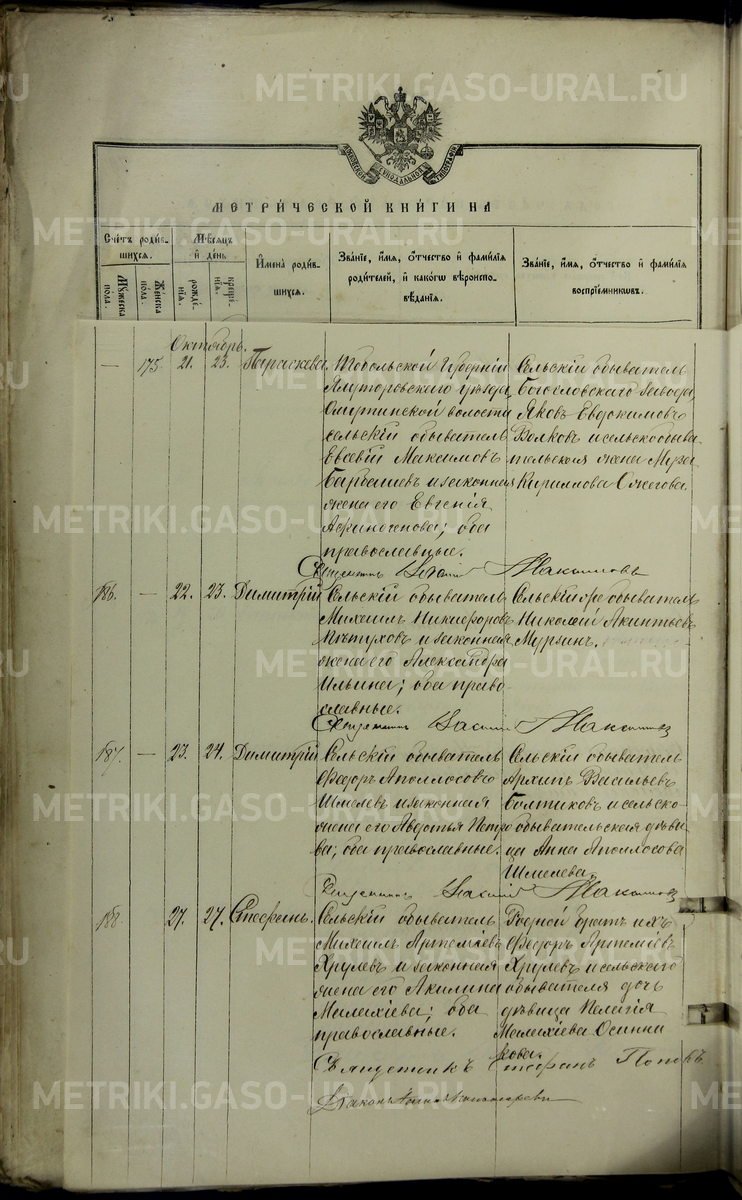 METRIKI.GASO-URAL.RU
МОСКОВСКОЙ СѴНОДАЛЬНОЙ ТИПОГРАФІИ
МЕТРИ́ЧЕСКОЙ КНИ́ГИ НА
Сче́тъ роди́вшихся.
Мѹ́жеска по́ла.
Же́нска по́ла.
Мѣ́сяцъ и҆ де́нь
рожде́нїѧ.
креще́нїѧ.
И҆мена̀ роди́вшихся.
Зва́нїе, и҆́мѧ, ѻ҆́тчество и҆ фами́лїѧ
роди́телей, и҆ како́гѡ вѣроисповѣ́данїѧ.
Зва́нїе, и҆́мѧ, ѻ҆́тчество и҆ фами́лїѧ
воспрїе́мникѡвъ.
Октябрь.
— 175. 21. 23. Параскева.
Тобольской Губерніи
Ялуторовскаго уѣзда,
волости
сельскій обыватель
Евсевій Максимовъ
Барбашевъ и законная
жена его Евгенія
оба
православные.
Сельскій обыватель
Богословскаго завода,
Яковъ Евдокимовъ
Волковъ и сельскообыва-
тельская жена
Кирилова
Священникъ Максимовъ
186. — 22. 23. Димитрій
Сельскій обыватель
Михаилъ Никифоровъ
Пѣтуховъ и законная
жена его Александра
Ильина; оба право-
славные.
Сельскій обыватель
Николай Акинтьевъ
Мурзинъ.
Священникъ Василій Максимовъ
187. — 23. 24. Димитрій
Сельскій обыватель
Ѳедоръ Аполлосовъ
Шмелевъ и законная
жена его Авдотья Петро-
ва; оба православные.
Сельскій обыватель
Архипъ Васильевъ
Болтиковъ и сельско-
обывательская дѣви-
ца Анна Аполлосова
Шмелева.
Священникъ Василій Максимовъ
188. 27. 27. Стефанъ.
Сельскій обыватель
Михаилъ Артеміевъ
Хрулевъ и законная
жена его Акилина
Малахіева; оба
православные.
Родной братъ ихъ
Ѳедоръ Артеміевъ
Хрулевъ и сельскаго
обывателя дочь
дѣвица Пелагія
Малахіева Осинни-
кова.
Священникъ Стефанъ Поповъ
Діаконъ